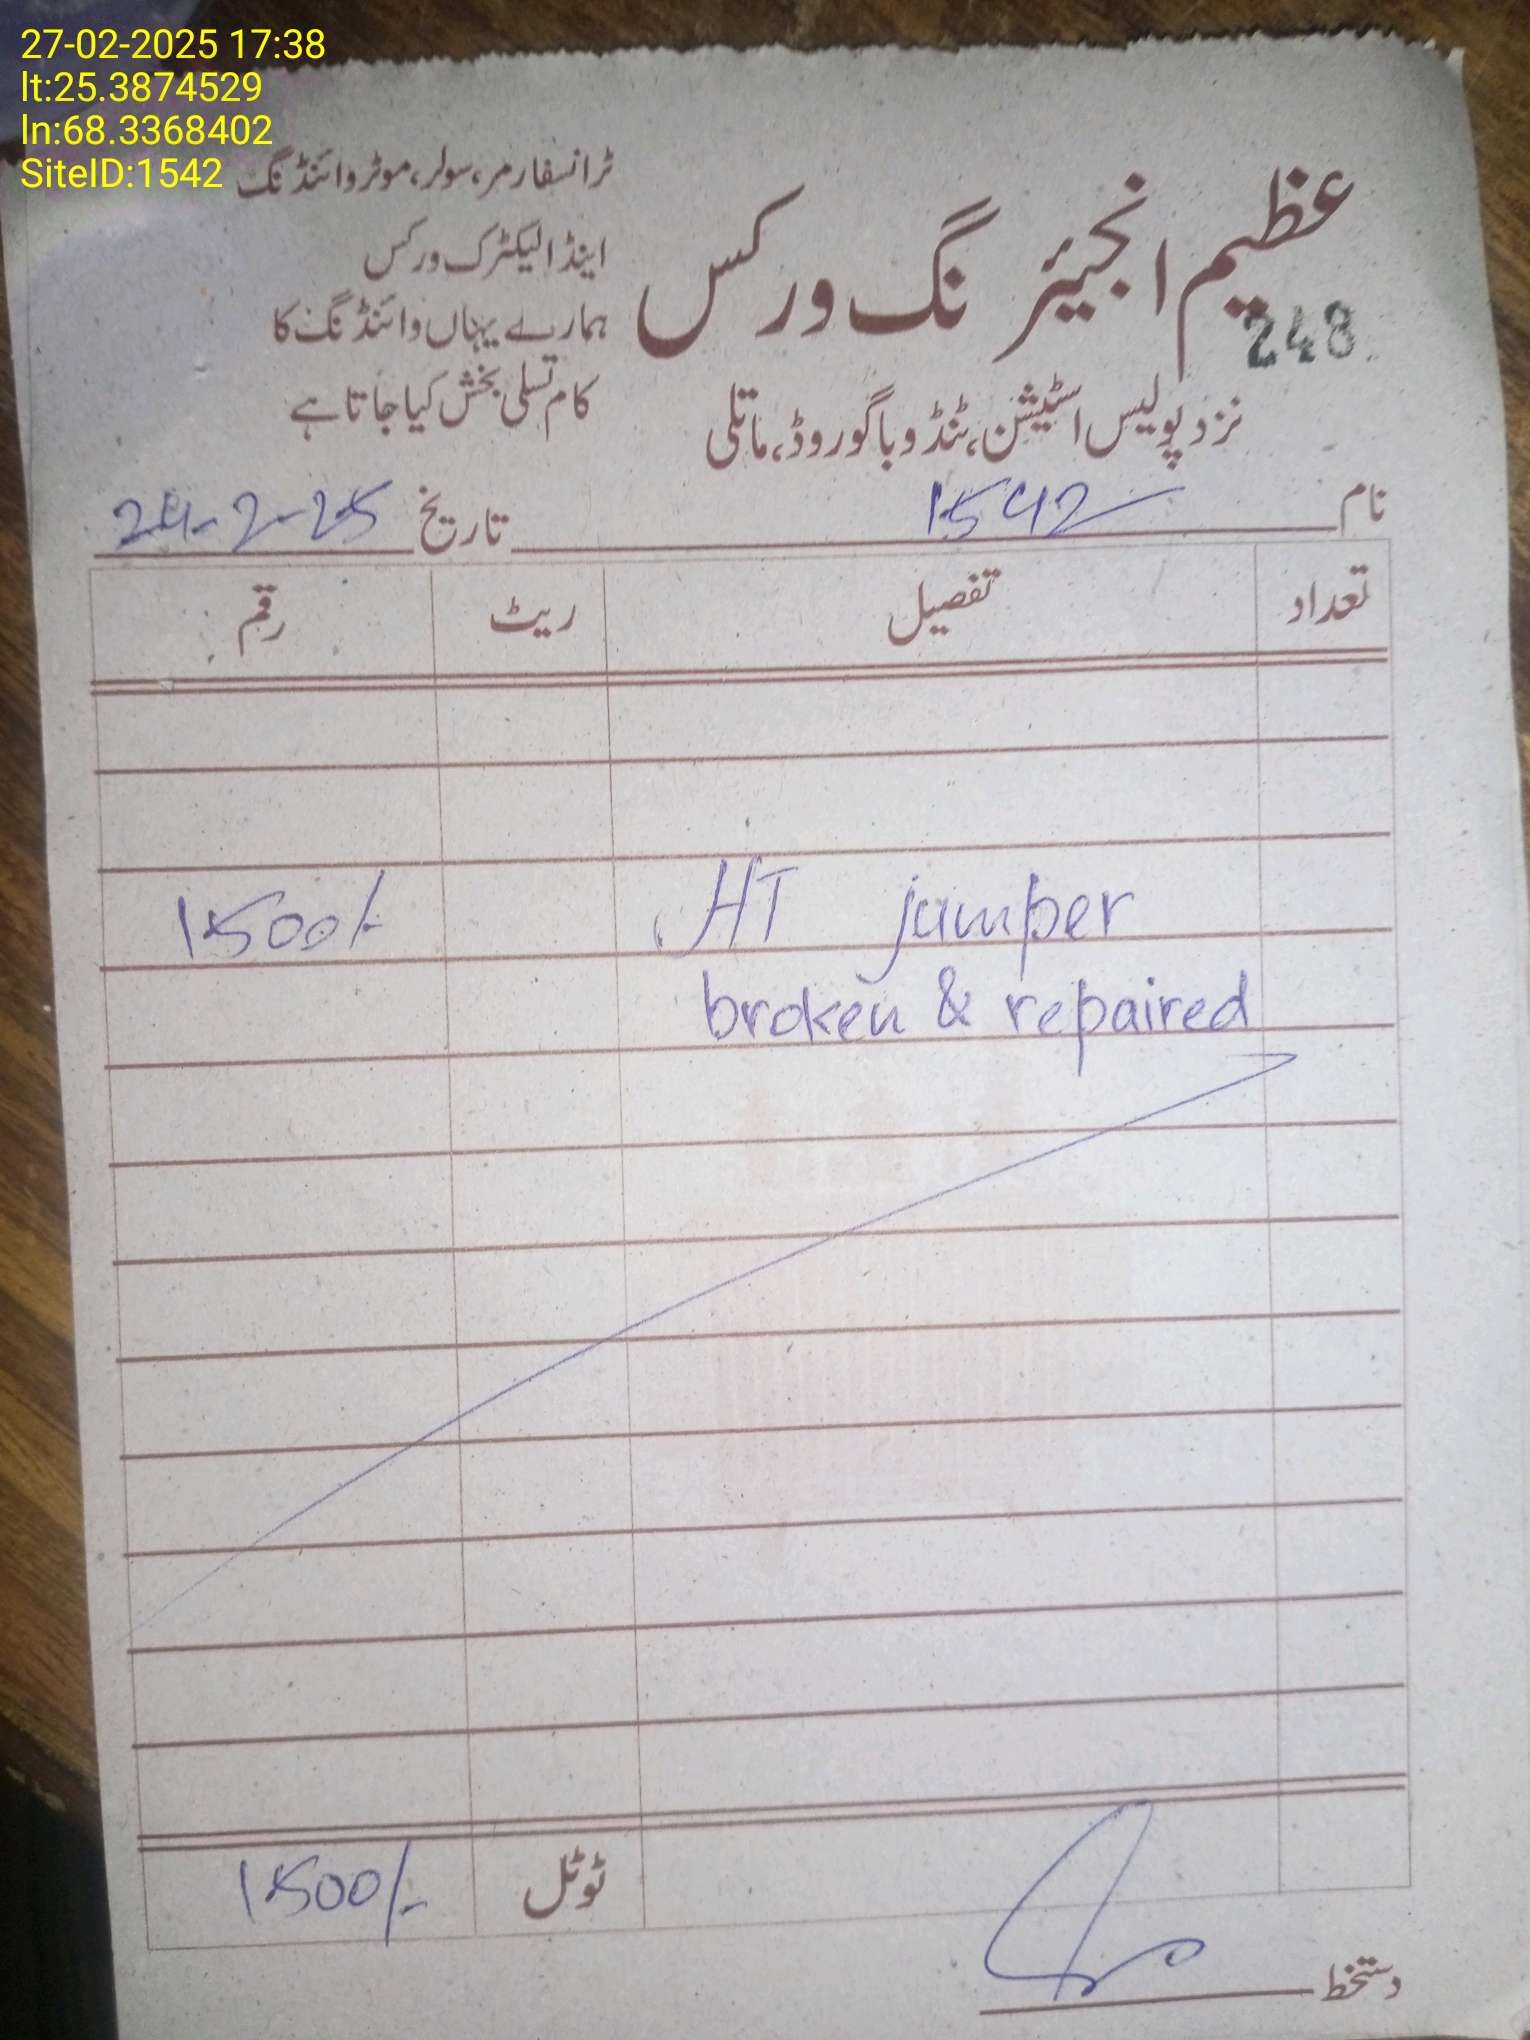 27-02-2025 17:38
lt:25.3874529
ln:68.3368402
SiteID:1542
عظیم انجیئرنگ ورکس
248
نزد پولیس اسٹیشن، ٹنڈو باگو روڈ، ماتلی
ٹرانسفارمر، سولر، موٹر وائنڈنگ
اینڈ الیکٹرک ورکس
ہمارے یہاں وائنڈنگ کا
کام تسلی بخش کیا جاتا ہے
نام 1542 تاریخ 24-2-25
تعداد تفصیل ریٹ رقم
HT jumper 1500/-
broken & repaired
ٹوٹل 1500/-
دستخط